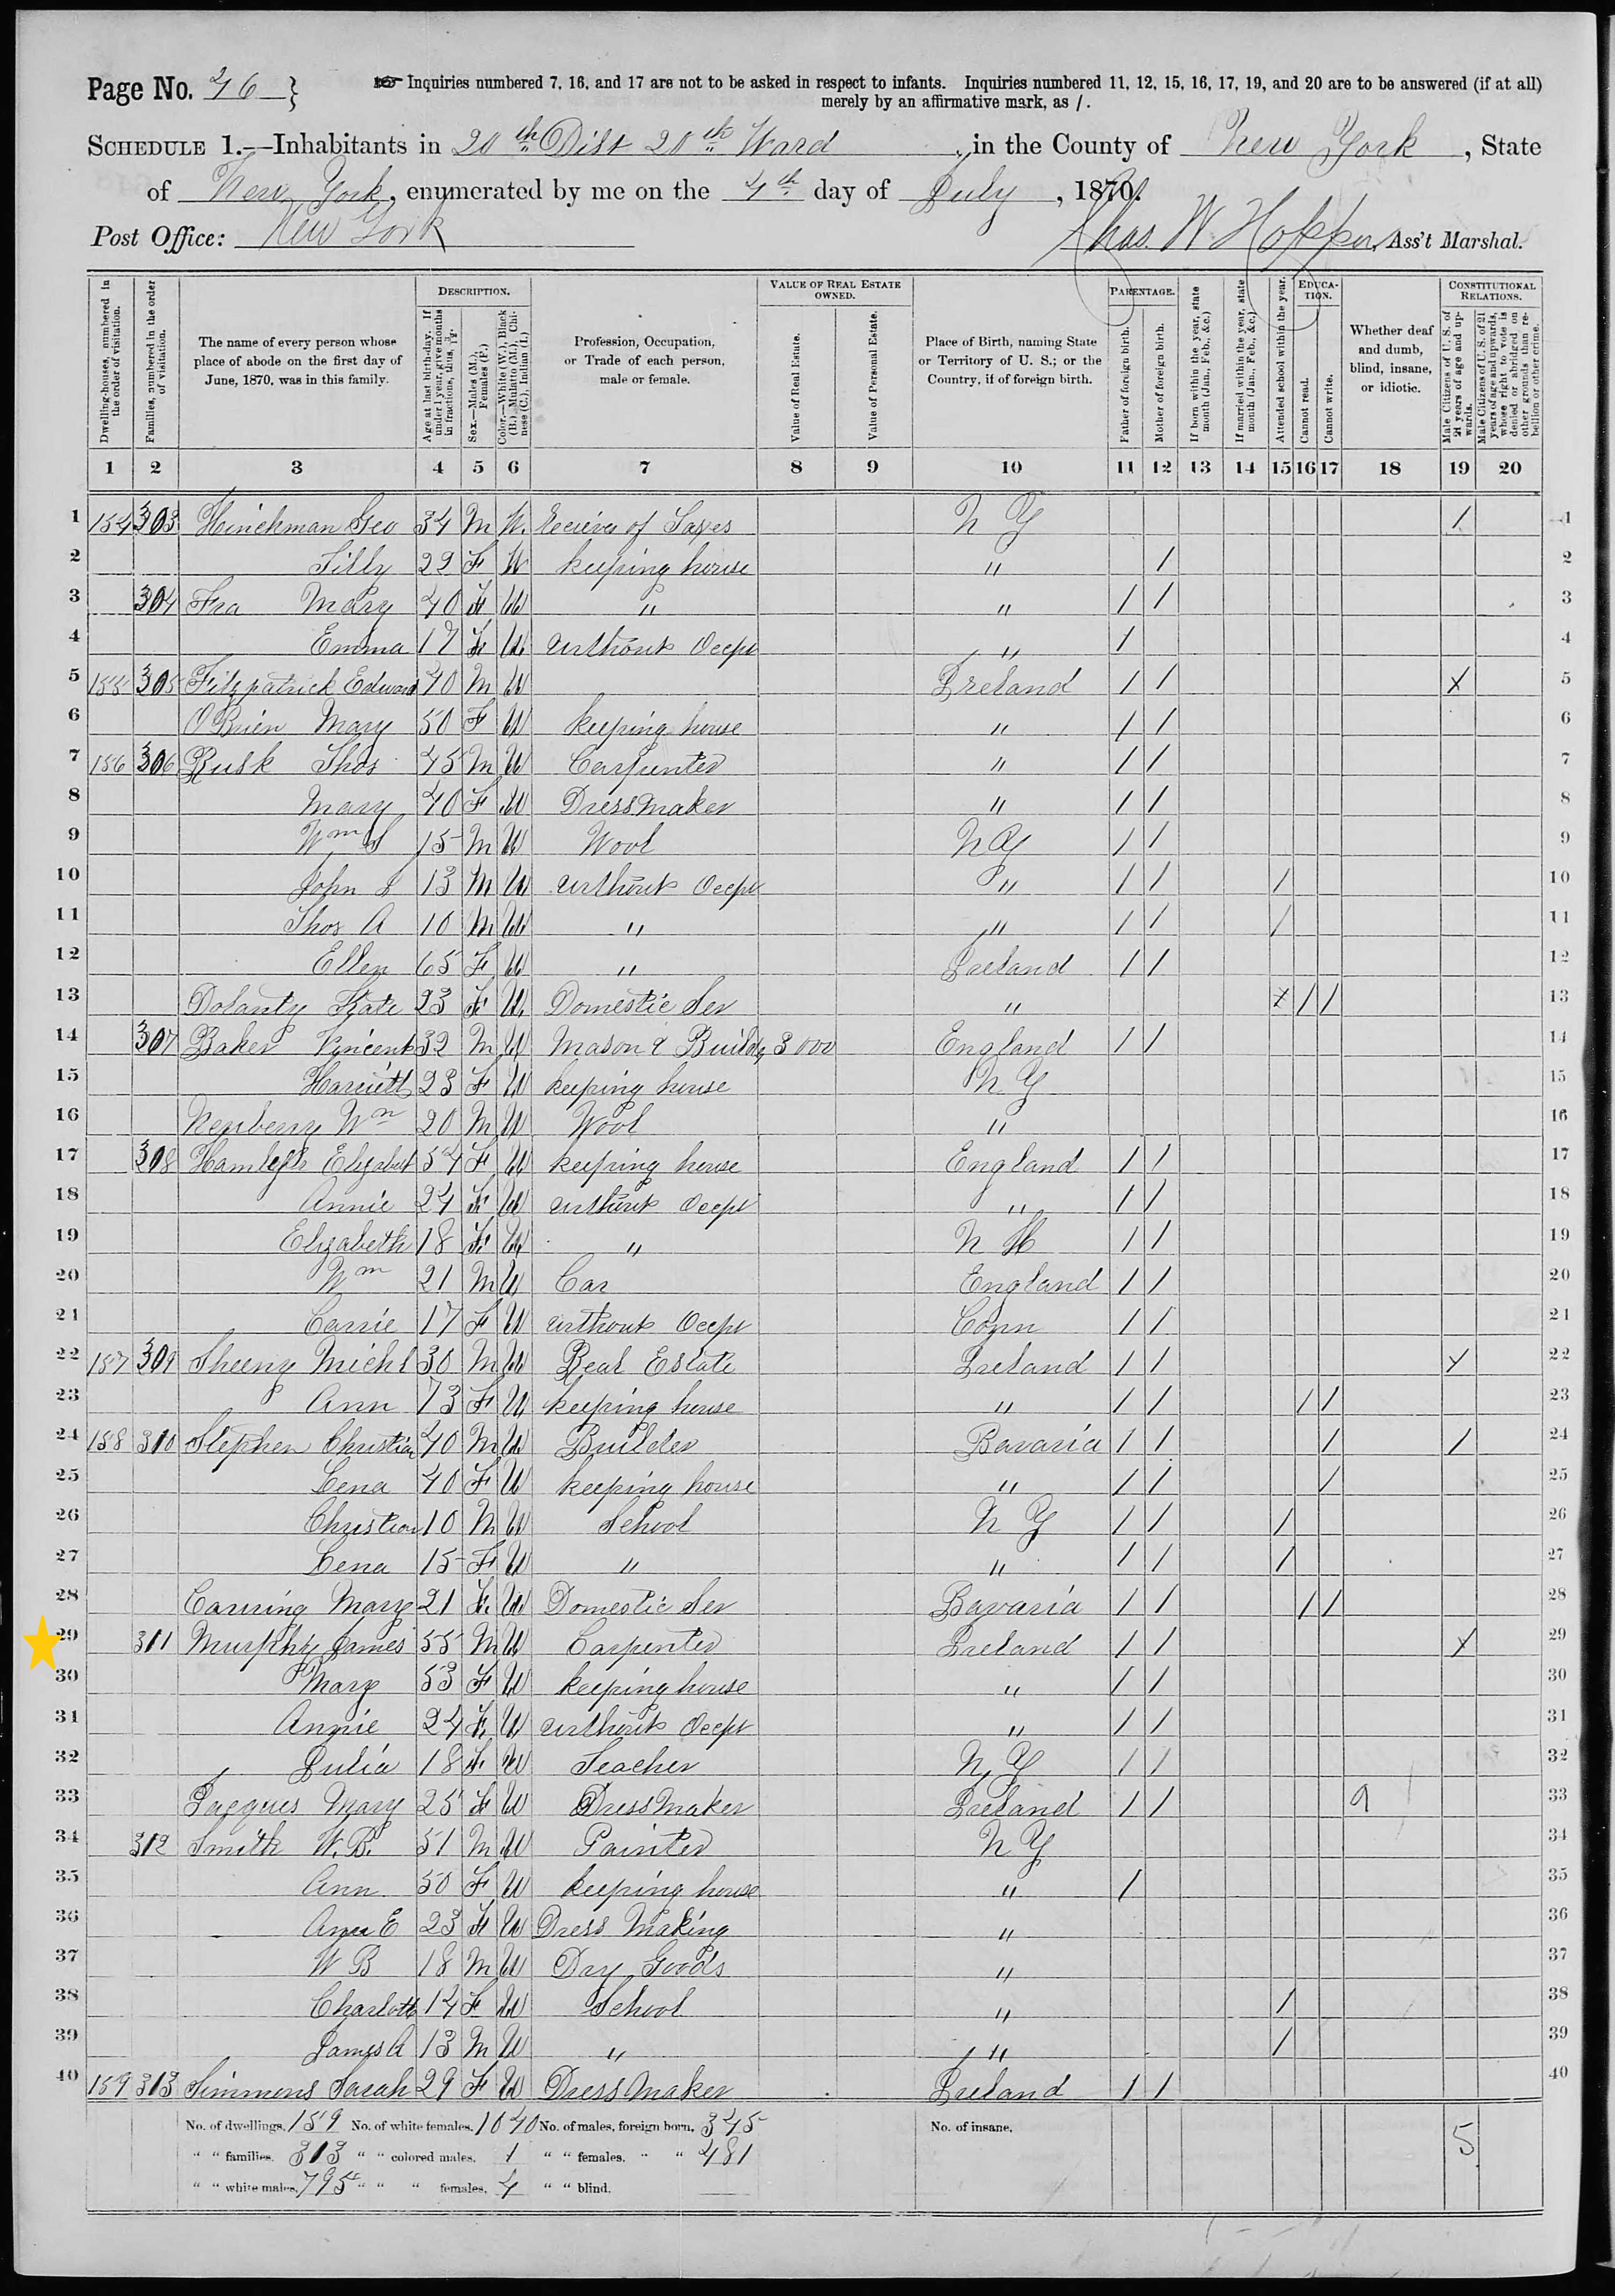 Page No. 46 }
Inquiries numbered 7, 16, and 17 are not to be asked in respect to infants. Inquiries numbered 11, 12, 15, 16, 17, 19, and 20 are to be answered (if at all)
merely by an affirmative mark, as /.
SCHEDULE 1.—Inhabitants in 20th Dist 20th Ward, in the County of New York, State
of New York, enumerated by me on the 4th day of July, 1870.
Post Office: New York Chas. W Hopper, Ass't Marshal.
DESCRIPTION. VALUE OF REAL ESTATE OWNED. PARENTAGE. EDUCATION. CONSTITUTIONAL RELATIONS.
Dwelling-houses, numbered in the order of visitation.
Families, numbered in the order of visitation.
The name of every person whose place of abode on the first day of June, 1870, was in this family.
Age at last birth-day. If under 1 year, give months in fractions, thus, 3/12.
Sex.—Males (M.), Females (F.)
Color.—White (W.), Black (B.), Mulatto (M.), Chinese (C.), Indian (I.)
Profession, Occupation, or Trade of each person, male or female.
Value of Real Estate.
Value of Personal Estate.
Place of Birth, naming State or Territory of U. S.; or the Country, if of foreign birth.
Father of foreign birth.
Mother of foreign birth.
If born within the year, state month (Jan., Feb., &c.)
If married within the year, state month (Jan., Feb., &c.)
Attended school within the year.
Cannot read.
Cannot write.
Whether deaf and dumb, blind, insane, or idiotic.
Male Citizens of U. S. of 21 years of age and upwards.
Male Citizens of U. S. of 21 years of age and upwards, whose right to vote is denied or abridged on other grounds than rebellion or other crime.
1 2 3 4 5 6 7 8 9 10 11 12 13 14 15 16 17 18 19 20
1 154 303 Hinchman Geo 34 M W. Receiver of Taxes N Y / 1
2 Tilly 22 F W keeping house " / 2
3 304 Fra Mary 40 F W " " / / 3
4 Emma 17 F W without Occpt " / 4
5 155 305 Fitzpatrick Edward 40 M W Ireland / / X 5
6 O'Brien Mary 50 F W keeping house " / / 6
7 156 306 Rusk Thos 45 M W Carpenter " / / 7
8 Mary 40 F W Dress Maker " / / 8
9 Wm S 15 M W Wool N Y / / 9
10 John J 13 M W without Occpt " / / / 10
11 Thos A 10 M W " " / / / 11
12 Ellen 65 F W " Ireland / / 12
13 Dolanty Kate 23 F W Domestic Ser " X / / 13
14 307 Baker Vincent 32 M W Mason & Builder 3000 England / / 14
15 Harriett 23 F W keeping house N Y 15
16 Newberry Wm 20 M W Wool " 16
17 308 Elizabet 54 F W keeping house England / / 17
18 Annie 24 F W without Occpt " / / 18
19 Elizabeth 18 F W " N H / / 19
20 Wm 21 M W Car England / / 20
21 Carrie 17 F W without Occpt Conn / / 21
22 157 309 Sheeny Michl 30 M W Real Estate Ireland / / X 22
23 Ann 73 F W keeping house " / / / / 23
24 158 310 Stephen Christian 40 M W Builder Bavaria / / / / 24
25 Lena 40 F W keeping house " / / / 25
26 Christian 10 M W School N Y / / / 26
27 Lena 15 F W " " / / / 27
28 Mary 21 F W Domestic Ser Bavaria / / / / 28
29 311 Murphy James 55 M W Carpenter Ireland / / X 29
30 Mary 53 F W keeping house " / / 30
31 Annie 24 F W without Occpt " / / 31
32 Julia 18 F W Teacher N Y / / 32
33 Jacques Mary 25 F W Dress Maker Ireland / / 33
34 312 Smith W. B. 51 M W Painter N Y 34
35 Ann 50 F W keeping house " / 35
36 Ann E 23 F W Dress Making " 36
37 W B 18 M W Dry Goods " 37
38 Charlotte 14 F W School " / 38
39 James A 13 M W " " / 39
40 159 313 Simmons Sarah 29 F W Dress Maker Ireland / / 40
No. of dwellings, 159 No. of white females, 1040 No. of males, foreign born, 345 No. of insane, 5
" " families, 313 " " colored males, 1 " " females, " " 481
" " white males, 795 " " " females, 4 " " blind,